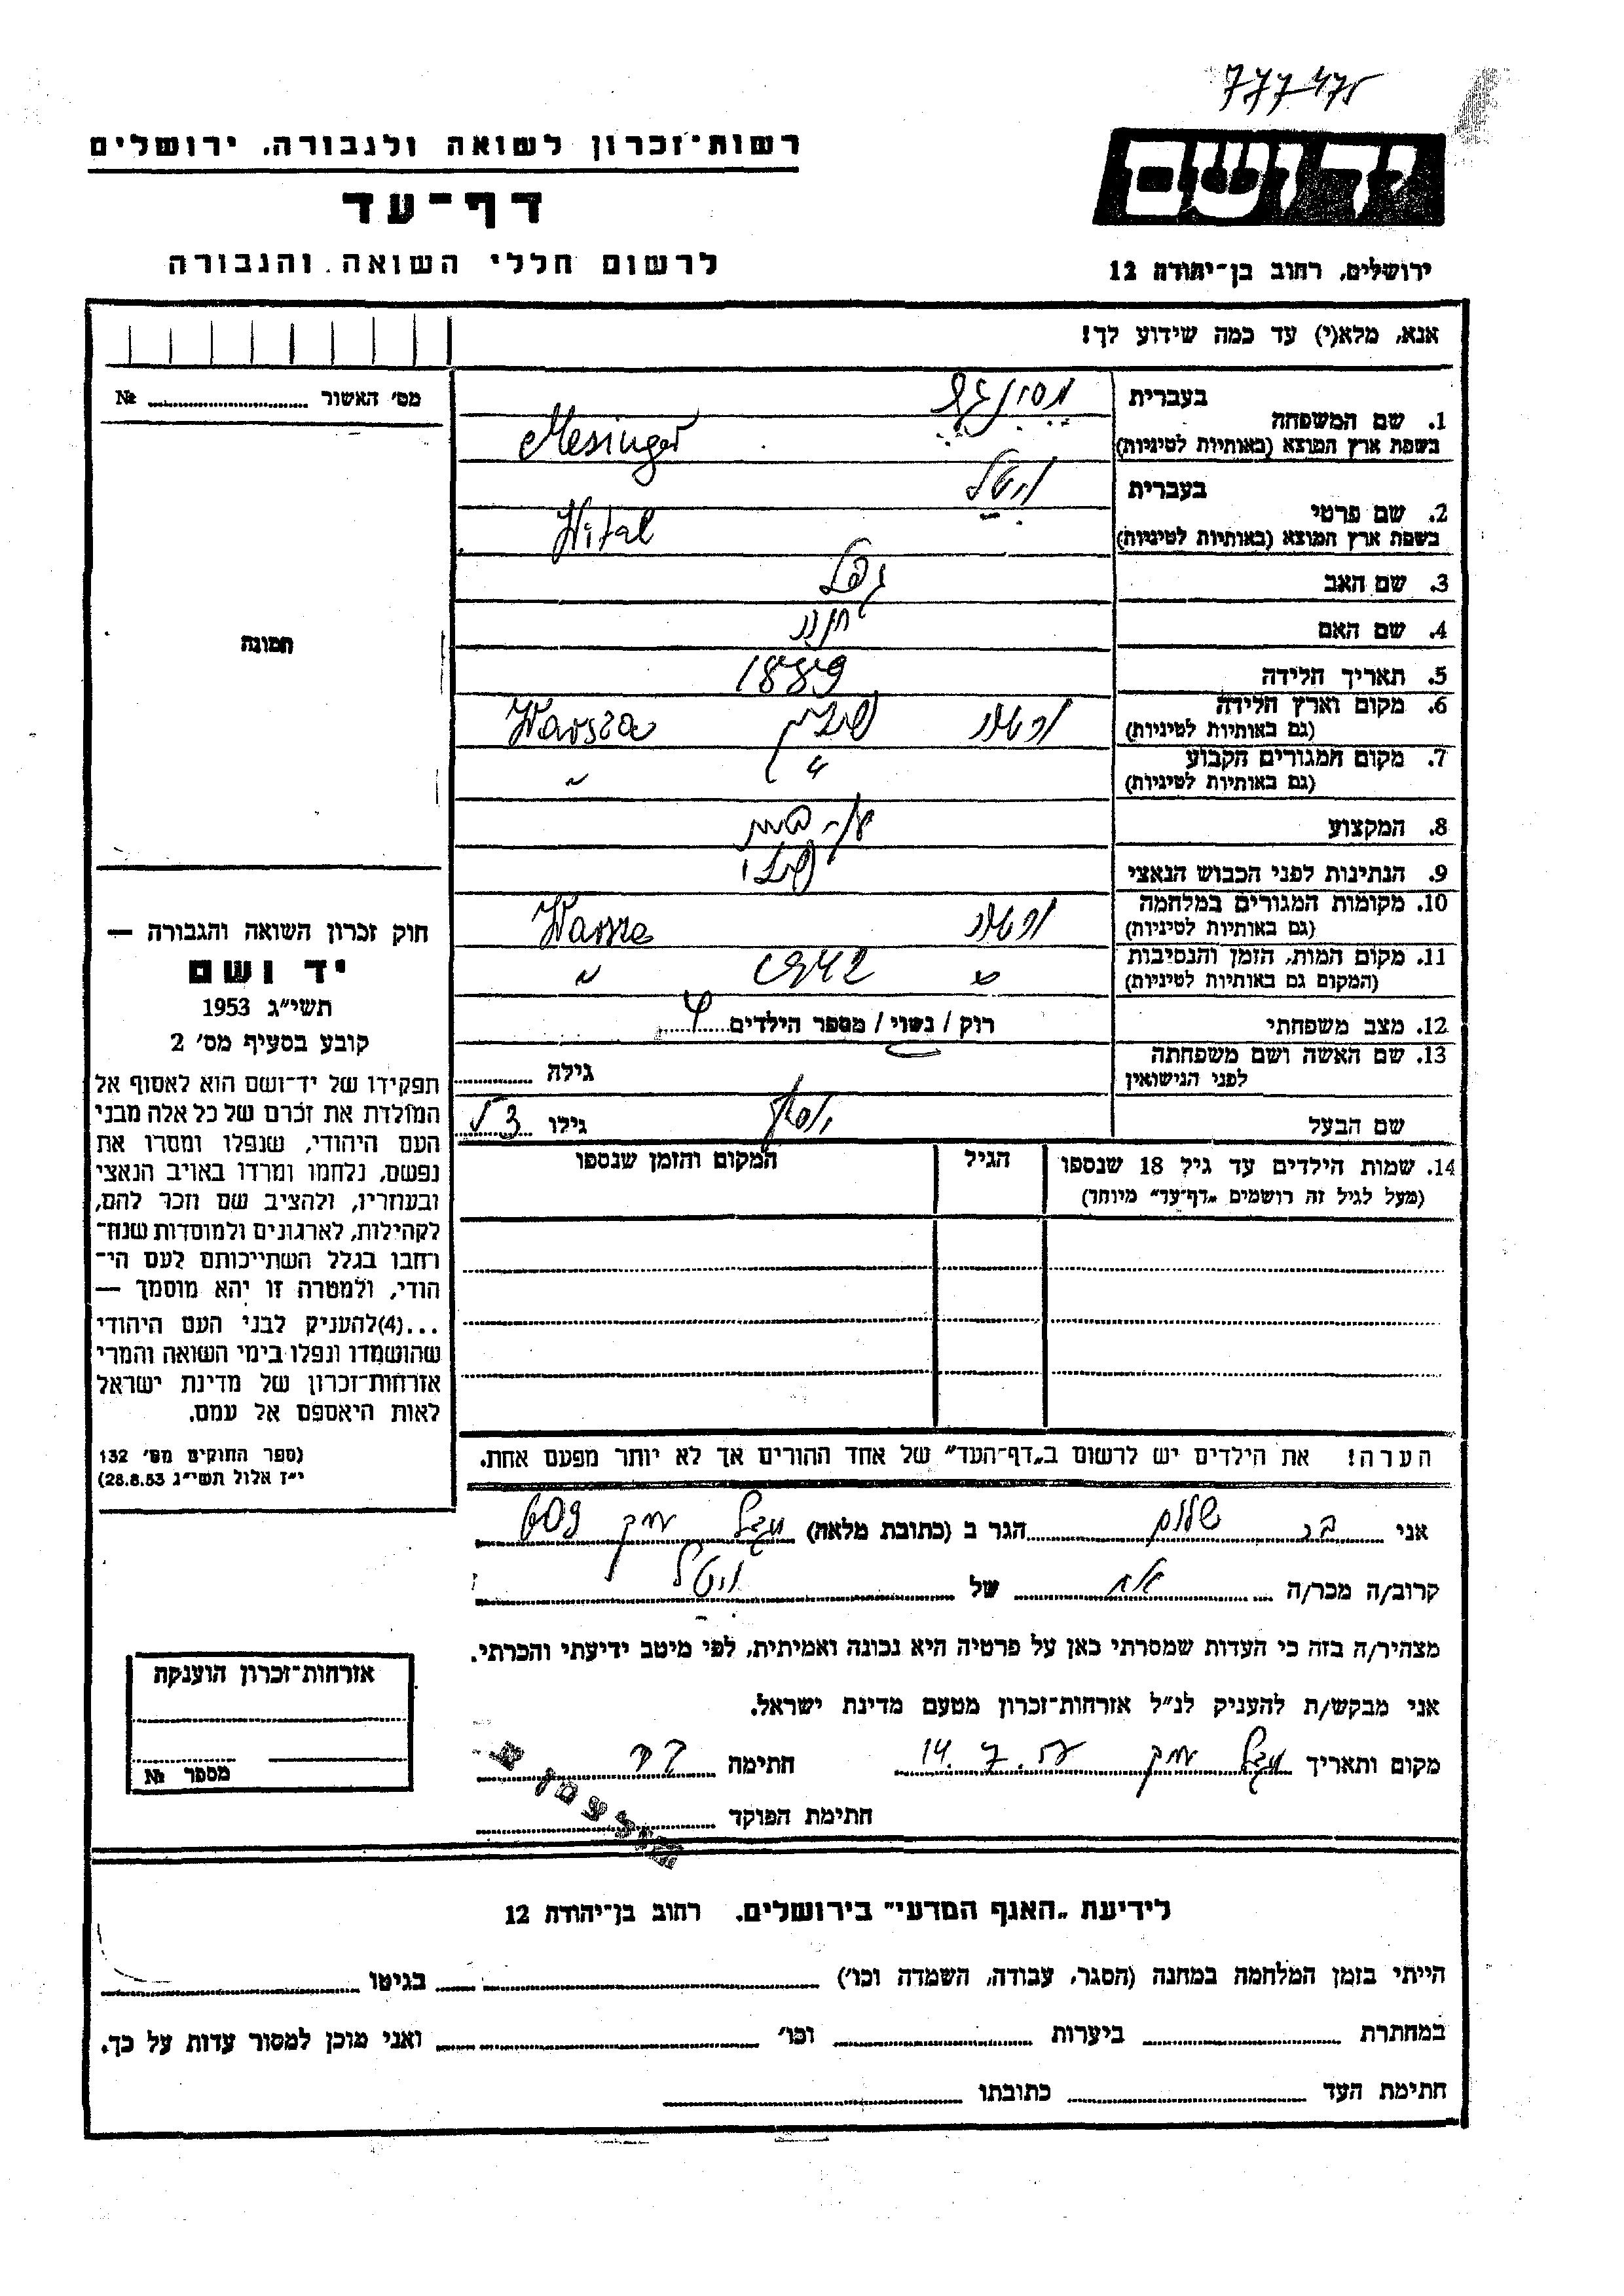 יד ושם
רשות־זכרון לשואה ולגבורה, ירושלים
דף־עד
לרשום חללי השואה והגבורה
ירושלים, רחוב בן־יהודה 12
אנא, מלא(י) עד כמה שידוע לך!
מס׳ האשור № ........
בעברית
1. שם המשפחה
בשפת ארץ המוצא (באותיות לטיניות) Mesinger
בעברית ויטל
2. שם פרטי
בשפת ארץ המוצא (באותיות לטיניות) Wital
3. שם האב
4. שם האם חנה
5. תאריך הלידה 1889
6. מקום וארץ הלידה ורשה פולין Warsza
(גם באותיות לטיניות)
7. מקום המגורים הקבוע " "
(גם באותיות לטיניות)
8. המקצוע עק. בית
9. הנתינות לפני הכבוש הנאצי פולני
10. מקומות המגורים במלחמה ורשה
(גם באותיות לטיניות)
11. מקום המות, הזמן והנסיבות " 1942 "
(המקום גם באותיות לטיניות)
12. מצב משפחתי רוק / נשוי / מספר הילדים 4
13. שם האשה ושם משפחתה
לפני הנישואין גילה ........
שם הבעל יוסף גילו 53
תמונה
חוק זכרון השואה והגבורה —
יד ושם
תשי״ג 1953
קובע בסעיף מס׳ 2
תפקידו של יד־ושם הוא לאסוף אל
המולדת את זכרם של כל אלה מבני
העם היהודי, שנפלו ומסרו את
נפשם, נלחמו ומרדו באויב הנאצי
ובעוזריו, ולהציב שם וזכר להם,
לקהילות, לארגונים ולמוסדות שנח־
רחבו בגלל השתייכותם לעם הי־
הודי, ולמטרה זו יהא מוסמך —
...(4)להעניק לבני העם היהודי
שהושמדו ונפלו בימי השואה והמרי
אזרחות־זכרון של מדינת ישראל
לאות היאספם אל עמם.
(ספר החוקים מס׳ 132
י״ז אלול תשי״ג 28.8.53)
14. שמות הילדים עד גיל 18 שנספו הגיל המקום והזמן שנספו
(מעל לגיל זה רושמים „דף־עד״ מיוחד)
הערה! את הילדים יש לרשום ב„דף־העד״ של אחד ההורים אך לא יותר מפעם אחת.
אני שלום הגר ב (כתובת מלאה) מגדל עמק 609
קרוב/ה מכר/ה אח של ויטל
מצהיר/ה בזה כי העדות שמסרתי כאן על פרטיה היא נכונה ואמיתית, לפי מיטב ידיעתי והכרתי.
אני מבקש/ת להעניק לנ״ל אזרחות־זכרון מטעם מדינת ישראל.
מקום ותאריך מגדל עמק חתימה
חתימת הפוקד
אזרחות־זכרון הוענקה
מספר №
לידיעת „האגף המדעי״ בירושלים. רחוב בן־יהודה 12
הייתי בזמן המלחמה במחנה (הסגר, עבודה, השמדה וכו׳) ........ בגיטו ........
במחתרת ........ ביערות ........ וכו׳ ........ ואני מוכן למסור עדות על כך.
חתימת העד ........ כתובתו ........